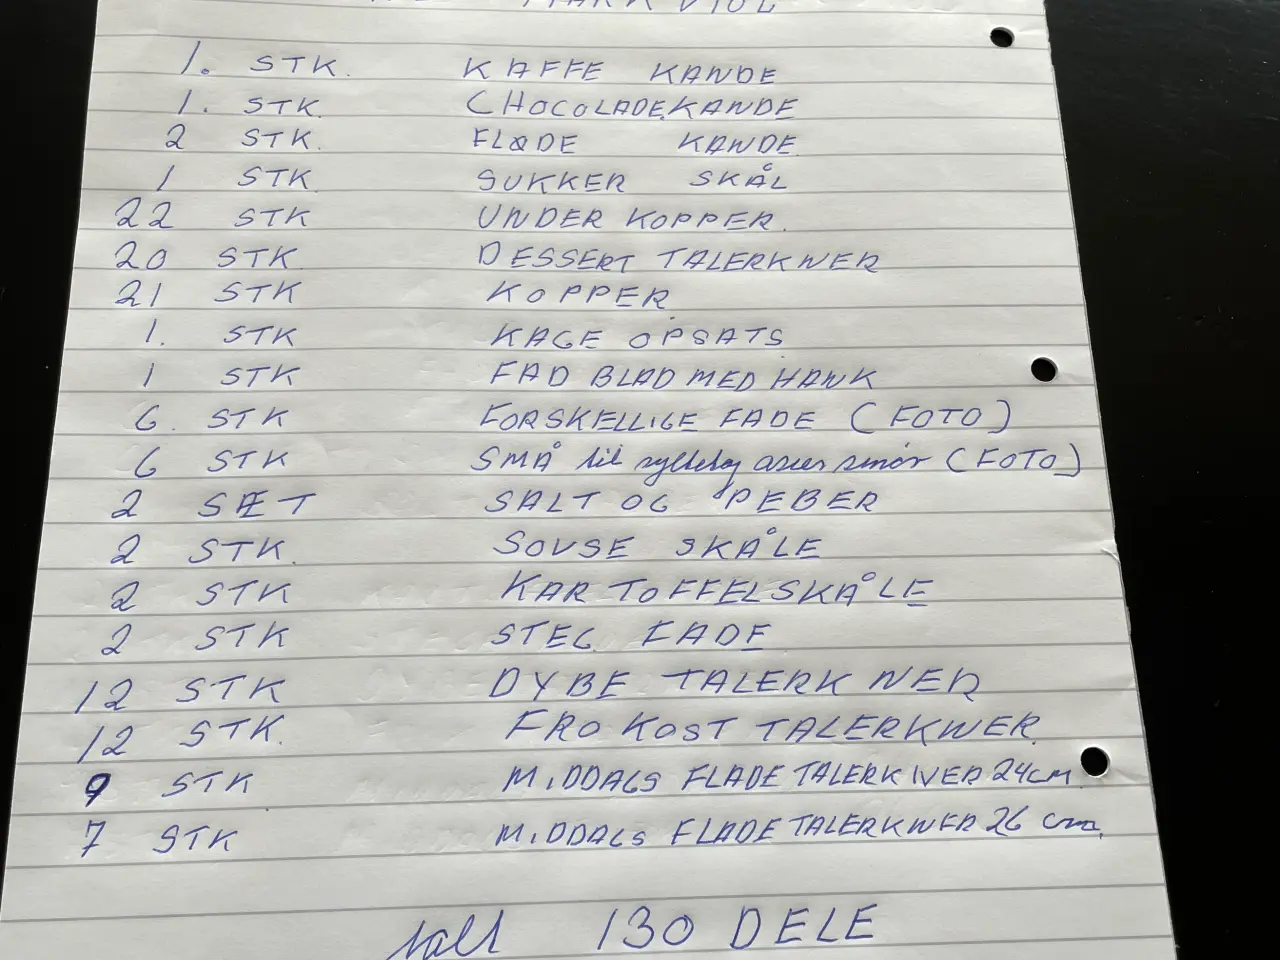 MARKVIOL
1. STK. KAFFE KANDE
1. STK. CHOCOLADEKANDE
2 STK. FLØDE KANDE
1 STK SUKKER SKÅL
22 STK UNDER KOPPER.
20 STK DESSERT TALERKNER
21 STK KOPPER
1. STK KAGE OPSATS
1 STK FAD BLAD MED HANK
6. STK FORSKELLIGE FADE (FOTO)
6 STK SMÅ til syltetøj asier smør (FOTO)
2 SÆT SALT OG PEBER
2 STK. SOVSE SKÅLE
2 STK KARTOFFELSKÅLE
2 STK STEG FADE
12 STK DYBE TALERKNER
12 STK. FROKOST TALERKNER
9 STK MIDDAGS FLADE TALERKNER 24CM
7 STK MIDDAGS FLADE TALERKNER 26 cm.
Ialt 130 DELE